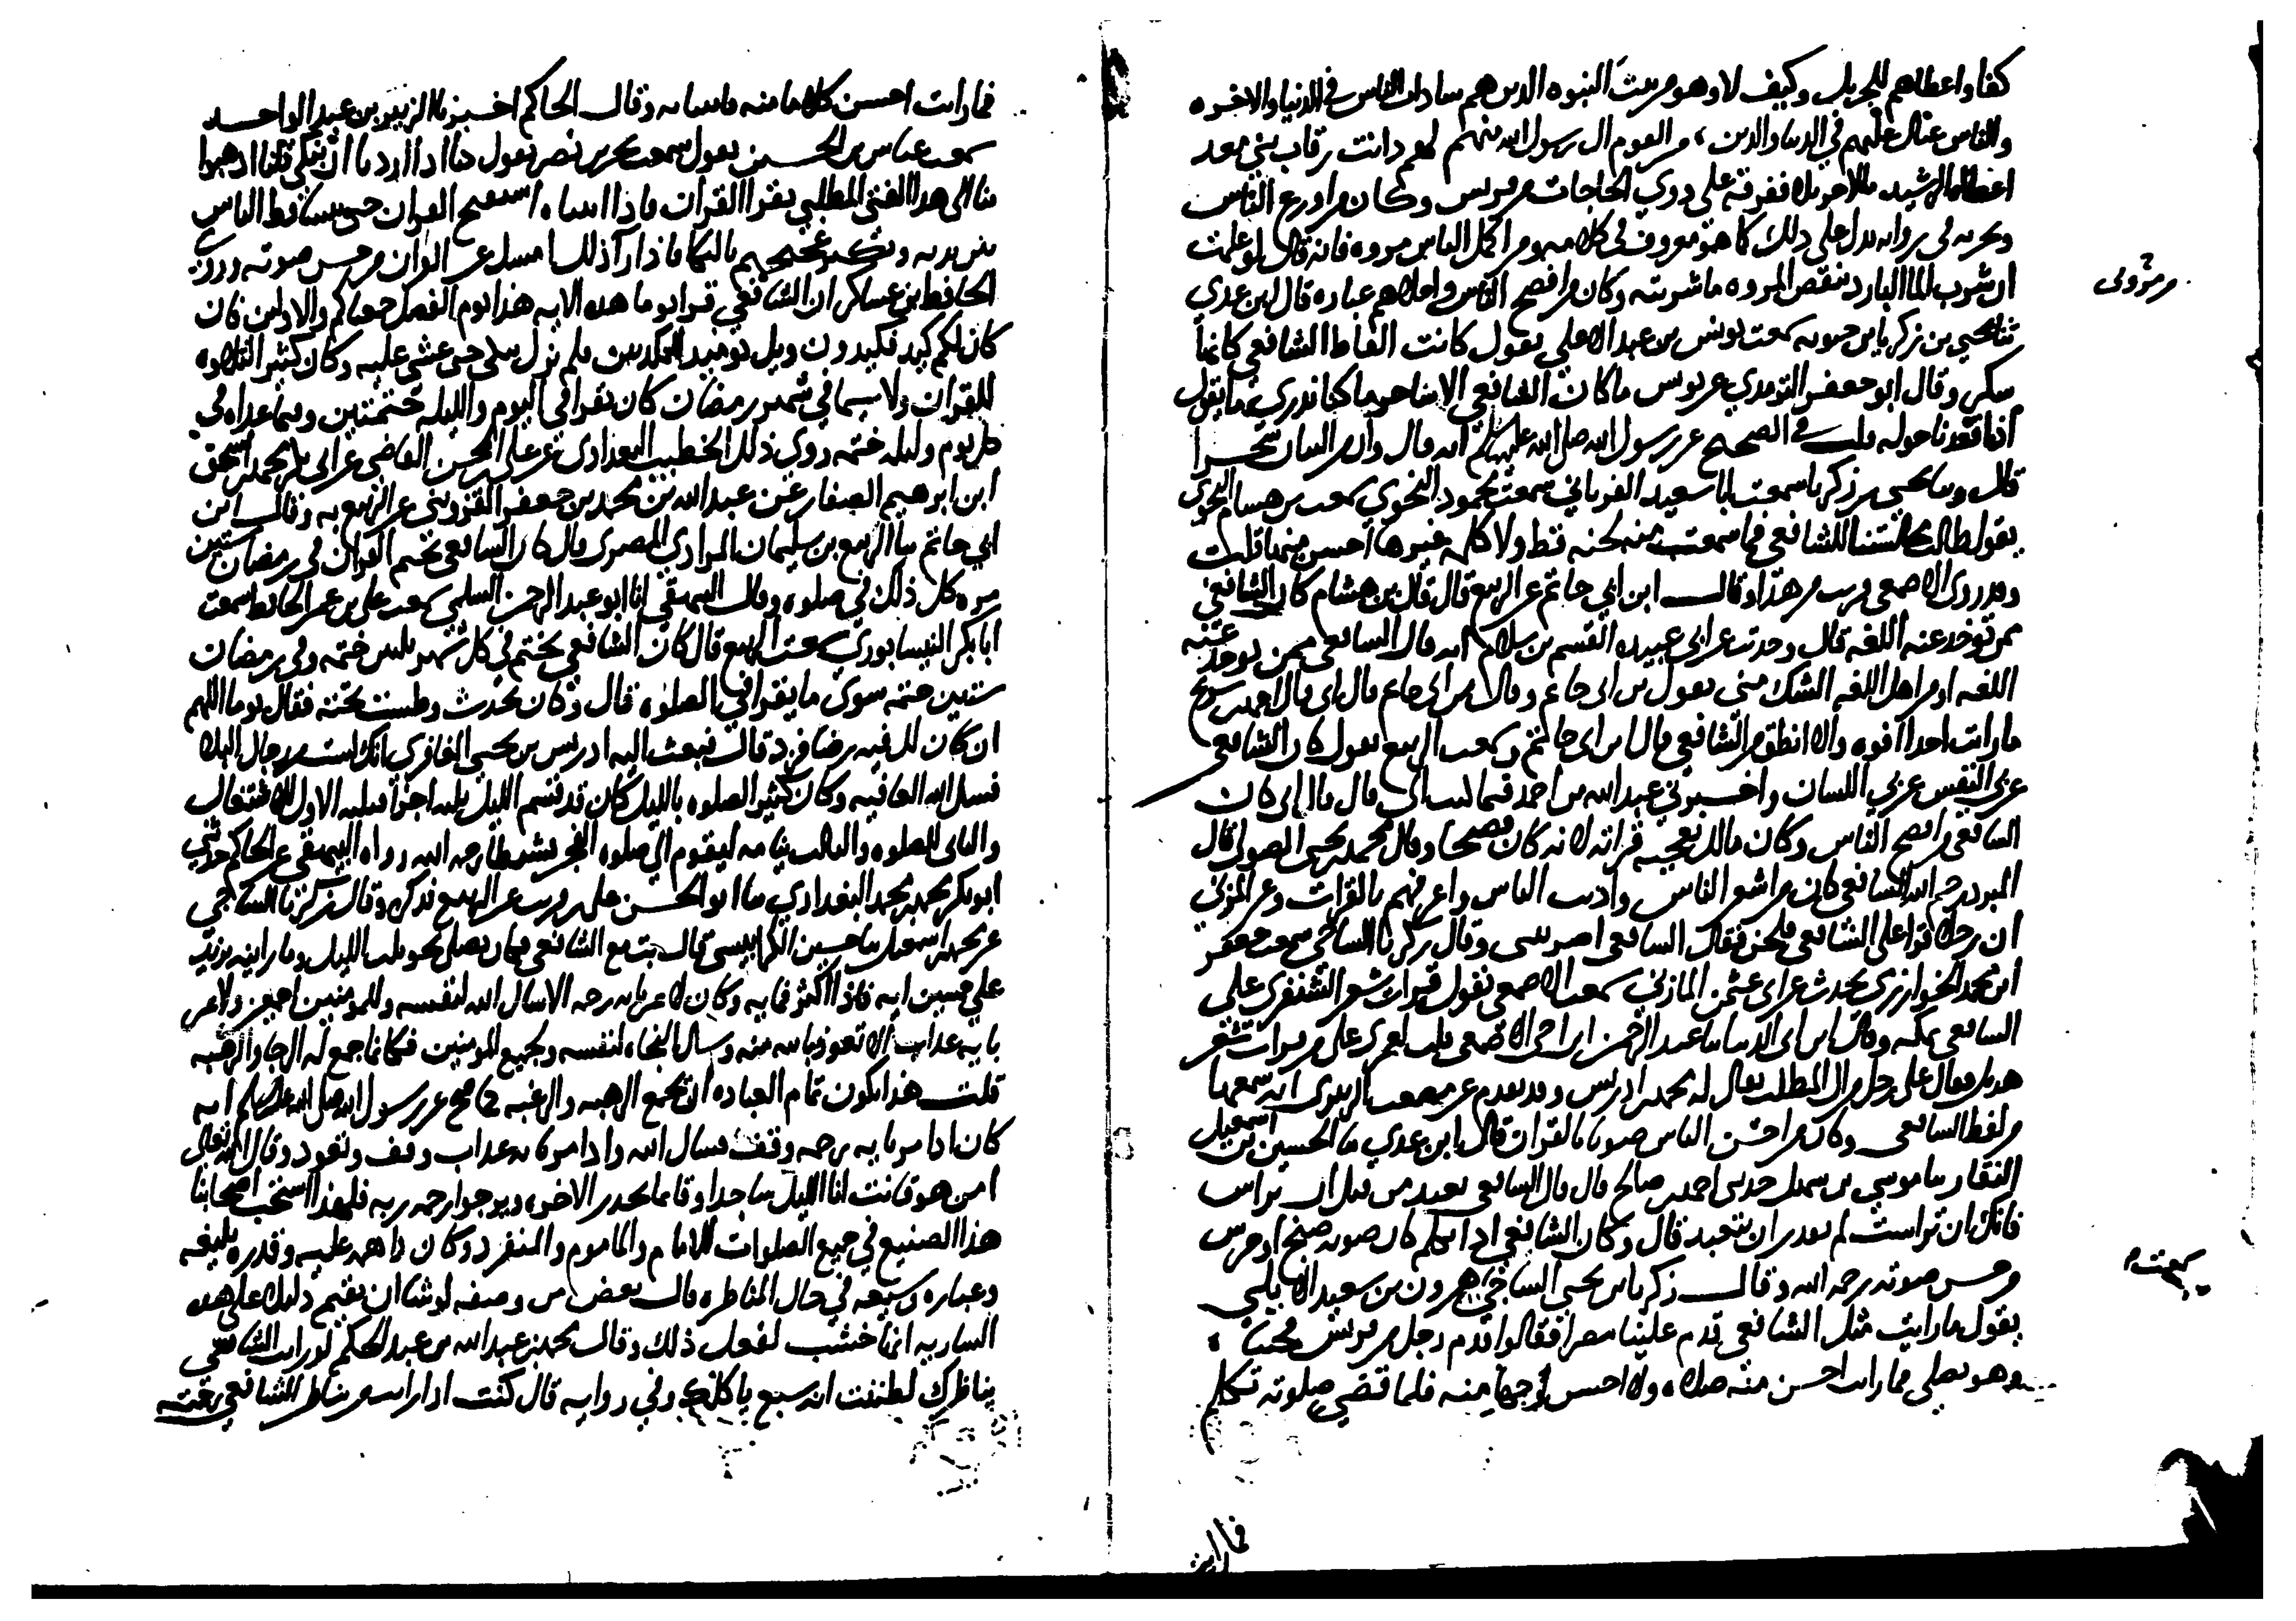 كفا واعطاهم للجزيل وكيف لا وهو من بيت النبوه الذين هم سادات الناس في الدنيا والاخره
والناس عيال عليهم في الدنيا والدين من القوم ال رسول الله منهم لهم دانت رقاب بني معد
اعطاه الرشيد مالا جزيلا ففرقه على ذوي الحاجات من قريش وكان من اورع الناس
يدل على ذلك كما هو معروف في كلامه ومن اكمل الناس مروه فانه قال لو علمت
ان شرب الما البارد ينقص المروه ما شربته وكان من افصح الناس واعلاهم عباره قال ابن عدي
ثنا يحيى بن زكريا بن حيويه سمعت يونس بن عبد الاعلى يقول كانت الفاظ الشافعي كانها
سكر وقال ابو جعفر الترمذي عن يونس ما كان الشافعي الا ساحرا ما كنا ندري ما يقول
اذا قعدنا حوله قلت في الصحيح عن رسول الله صلى الله عليه وسلم انه قال وان من البيان سحرا
قال وثنا يحيى بن زكريا سمعت ابا سعيد الفريابي سمعت محمود النحوي سمعت بن هشام النحوي
يقول طالت مجالستنا للشافعي فما سمعت منه لحنه قط ولا كلمه غيرها احسن منها قلت
وقد روى الاصمعي قريب من هذا وقال ابن ابي حاتم عن الربيع قال قال بن هشام كان الشافعي
ممن توخذ عنه اللغه قال وحدثت عن ابي عبيده القسم بن سلام انه قال الشافعي ممن توخذ عنه
اللغه او من اهل اللغه الشك مني يقول بن ابي حاتم وقال ابن ابي حاتم قال ابي قال احمد بن سريج
ما رايت احدا افوه ولا انطق من الشافعي قال ابن ابي حاتم وسمعت الربيع يقول كان الشافعي
عربي النفس عربي اللسان واخبرني عبد الله بن احمد فيما كتب الي قال قال ابي كان
الشافعي من افصح الناس وكان مالك تعجبه قراته لانه كان فصيحا وقال محمد بن يحيى الصولي قال
المبرد رحم الله الشافعي كان من اشعر الناس وآدب الناس واعرفهم بالقرات وعن المزني
ان رجلا قرا على الشافعي فلحن فقال الشافعي اضرستني وقال زكريا الساجي سمعت جعفر
ابن محمد الخوارزمي يحدث عن ابي عثمن المازني سمعت الاصمعي يقول قرات شعر الشنفرى على
الشافعي بمكه وقال ابن ابي الدنيا ثنا عبد الرحمن ابن اخي الاصمعي قلت لعمي على من قرات شعر
هذيل فقال على رجل من ال المطلب يقال له محمد بن ادريس وقد تقدم عن مصعب الزبيري انه سمعها
من لفظ الشافعي وكان من احسن الناس صوتا بالقران قال ابن عدي ثنا الحسين بن اسمعيل
النقار ثنا موسى بن سهل حدثني احمد بن صالح قال قال الشافعي تعبد من قبل ان تراس
فانك ان تراست لم تقدر ان تتعبد قال وكان الشافعي اذا تكلم كان صوته صنج او جرس
من حسن صوته رحمه الله وقال زكريا بن يحيى الساجي سمعت هرون بن سعيد الايلي
يقول ما رايت مثل الشافعي قدم علينا مصر فقالوا قدم رجل من قريش فجئناه
وهو يصلي فما رايت احسن منه صلاه ولا احسن وجها منه فلما قضى صلوته تكلم
فما رايت
فما رايت احسن كلاما منه وقال الحاكم اخبرنا الزبير بن عبد الواحد
سمعت عباس بن الحسين يقول سمعت بحر بن نصر يقول كنا اذا اردنا ان نبكي قلنا اذهبوا
بنا الى هذا الفتى المطلبي يقرا القران فاذا اتيناه استفتح القران حتى يتساقط الناس
بين يديه ويكثر عجيجهم بالبكا فاذا راى ذلك امسك عن القران من حسن صوته وروى
الحافظ بن عساكر ان الشافعي قرا يوما هذه الايه هذا يوم الفصل جمعناكم والاولين فان
كان لكم كيد فكيدون ويل يومئذ للمكذبين فلم يزل يبكي حتى غشي عليه وكان كثير التلاوه
للقران ولا سيما في شهر رمضان كان يقرا في اليوم والليله ختمتين وفيما عداه في
كل يوم وليله ختمه روى ذلك الخطيب البغدادي عن علي بن المحسن القاضي عن ابي بكر محمد بن اسحق
ابن ابرهيم الصفار عن عبد الله بن محمد بن جعفر القزويني عن الربيع به وقال ابن
ابي حاتم ثنا الربيع بن سليمان المرادي المصري قال كان الشافعي يختم القران في رمضان ستين
مره كل ذلك في صلوه وقال البيهقي انا ابو عبد الرحمن السلمي سمعت علي بن عمر الحافظ سمعت
ابا بكر النيسابوري سمعت الربيع قال كان الشافعي يختم في كل شهر ثلثين ختمه وفي رمضان
ستين ختمه سوى ما يقرا في الصلوه قال وكان يحدث وطست تحته فقال يوما اللهم
ان كان لك فيه رضا فزد قال فبعث اليه ادريس بن يحيى المعافري انك لست من رجال البلا
فسل الله العافيه وكان كثير الصلوه بالليل كان قد قسم الليل ثلثه اجزا فثلثه الاول للاشتغال
والثاني للصلوه والثالث ينامه ليقوم الى صلوه الفجر نشيطا رحمه الله رواه البيهقي عن الحاكم حدثني
ابو بكر محمد بن محمد البغدادي ثنا ابو الحسن عن الربيع فذكره وقال زكريا الساجي
عن محمد بن اسمعيل ثنا حسين الكرابيسي قال بت مع الشافعي فكان يصلي نحو ثلث الليل وما رايته يزيد
على خمسين ايه فاذا اكثر فمايه وكان لا يمر بايه رحمه الا سال الله لنفسه وللمومنين اجمعين ولا يمر
بايه عذاب الا تعوذ بالله منه وسال النجاه لنفسه ولجميع المومنين فكانما جمع له الرجا والرهبه
قلت هذا يكون تمام العباده ان تجمع الرهبه والرغبه كما صح عن رسول الله صلى الله عليه وسلم انه
كان اذا مر بايه رحمه وقف فسال الله واذا مر بايه عذاب وقف وتعوذ وقال الله تعالى
امن هو قانت انا الليل ساجدا وقائما يحذر الاخره ويرجوا رحمه ربه فلهذا استحب اصحابنا
هذا الصنيع في جميع الصلوات للامام والماموم والمنفرد وكان ذا همه عليه وقدره بليغه
وعباره وسيعه في حال المناظره قال بعض من وصفه لو شا ان يقيم دليلا على هذه
الساريه انها خشب لفعل ذلك وقال محمد بن عبد الله بن عبد الحكم لو رايت الشافعي
يناظرك لظننت انه سبع ياكلك وفي روايه قال كنت اذا رايت من يناظر الشافعي رحمته